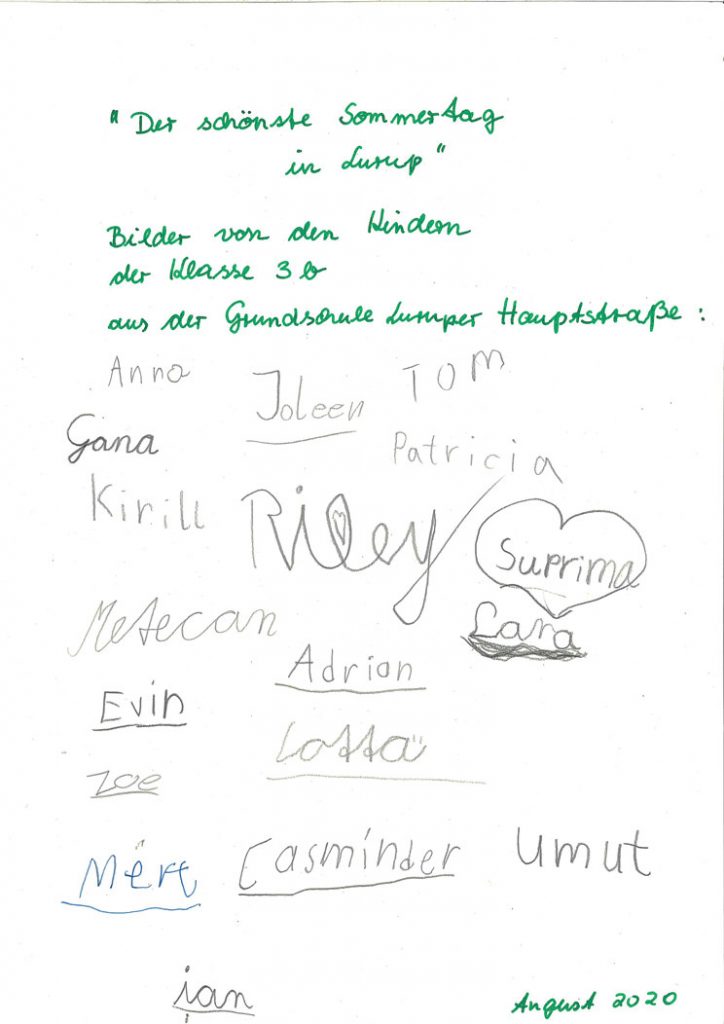 "Der schönste Sommertag
in Lurup"
Bilder von den Kindern
der Klasse 3b
aus der Grundschule Luruper Hauptstraße:
Anna Joleen TOM
Gana Patricia
Kirill Riley Suprima
Metecan Lara
Adrian
Evin
Lotta
Zoe
Mert Casminder Umut
jan
August 2020